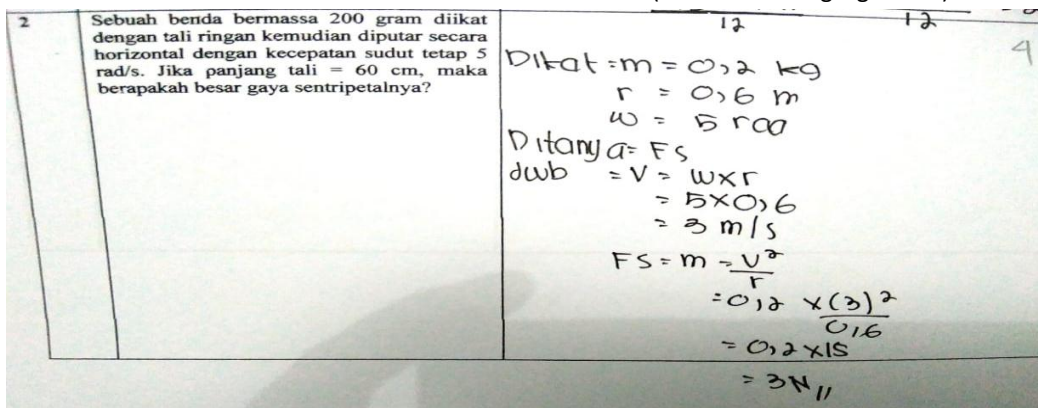 12 12
2
Sebuah benda bermassa 200 gram diikat
dengan tali ringan kemudian diputar secara
horizontal dengan kecepatan sudut tetap 5
rad/s. Jika panjang tali = 60 cm, maka
berapakah besar gaya sentripetalnya?
4
Dikat = m = 0,2 kg
r = 0,6 m
ω = 5 rad
Ditanya = Fs
dwb = V = ω x r
= 5 x 0,6
= 3 m/s
Fs = m = v²
r
= 0,2 x (3)²
0,6
= 0,2 x 15
= 3 N //